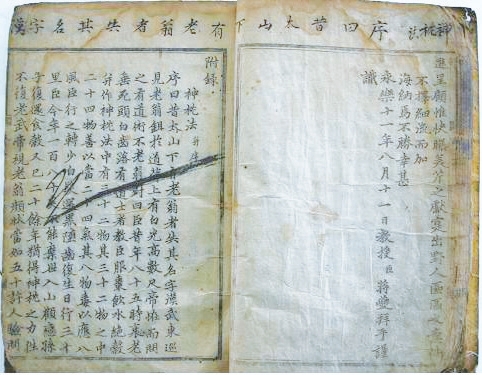 神枕法 序曰昔太山下有老翁者失其名字漢
進呈顧惟快 美芹之獻寔出野人區區之意
不擇細流而加
海納焉不勝幸甚
永樂十一年八月十一日教授臣蔣夔拜手謹
識
附錄
神枕法 并序
序曰昔太山下有老翁者失其名字漢武東巡
見老翁鋤於道 上有白光高數尺帝怪而問
之有道術不老翁對曰臣昔年八十五時衰老
垂死頭白齒落有道士者教臣服棗飲水絕穀
并作神枕法中有三十二物其三十二物之中
二十四物善以當二十四氣其八物毒以應八
風臣行之轉少白 還黑墮齒復生日行三十
里臣今年一百八十 不能棄世入山顧戀孫
子復還食穀又已二十餘年猶得神枕之力往
不復老武帝視老翁顏狀當如五十許人驗問